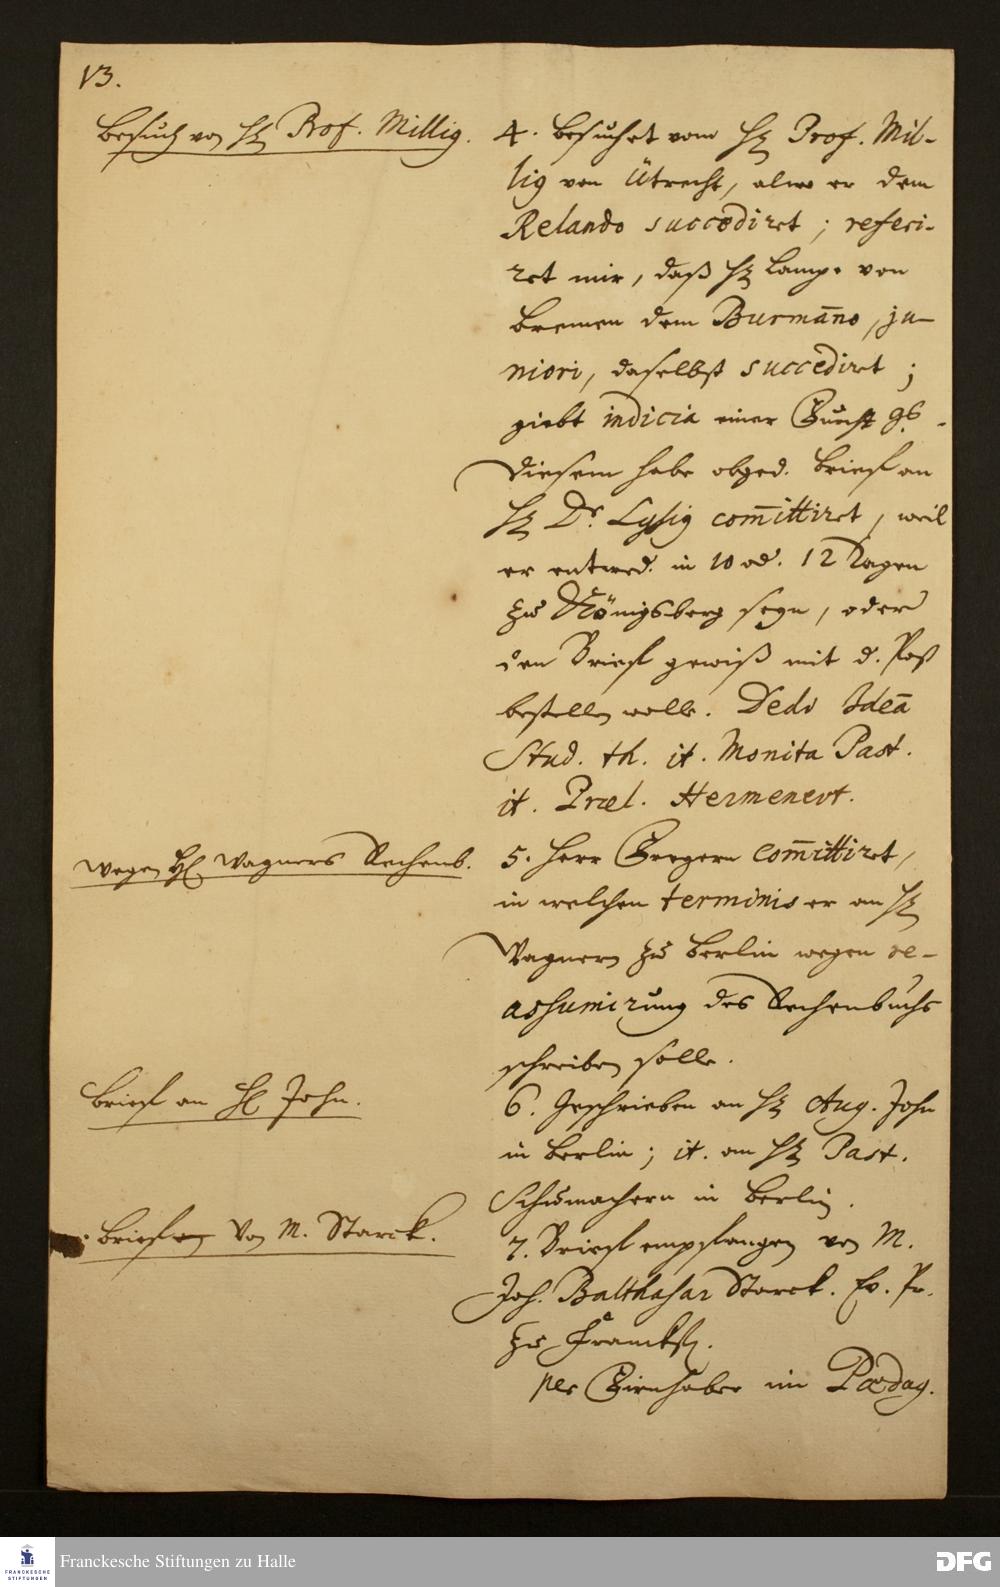 13.
Besuch von H. Prof. Millig.
4. Besuchet vom H. Prof. Mil-
lig von Ütrecht, alwo er dem
Relando succediret; referi-
ret mir, daß H. Lampe von
Bremen dem Burman̄o, ju-
niori, daselbst succediret;
giebt indicia einer
Diesem habe obged. Brief an
H. Dr. Lysig com̄ittiret, weil
er entwed. in 10 od. 12 Tagen
zu Königsberg seyn, oder
den Brief gewiß mit d. Post
bestellen wolle. Dedi Ideā
Stud. th. it. Monita Past.
it. Præl. Hermenevt.
Wegen H. Wagners Rechenb.
5. Herr Gregern com̄ittiret,
in welchen terminis er an H.
Wagnern zu Berlin wegen re-
assumirung des Rechenbuchs
schreiben solle.
Brief an H. John.
6. Geschrieben an H. Aug. John
in Berlin; it. an H. Past.
Schumachern in Berlin.
Brief von M. Starck.
7. Brief empfangen von M.
Joh. Balthasar Starck. Ev. Pr.
zu Franckf.
per Girnhaber im Pædag.
Franckesche Stiftungen zu Halle
FRANCKESCHE
STIFTUNGEN
DFG